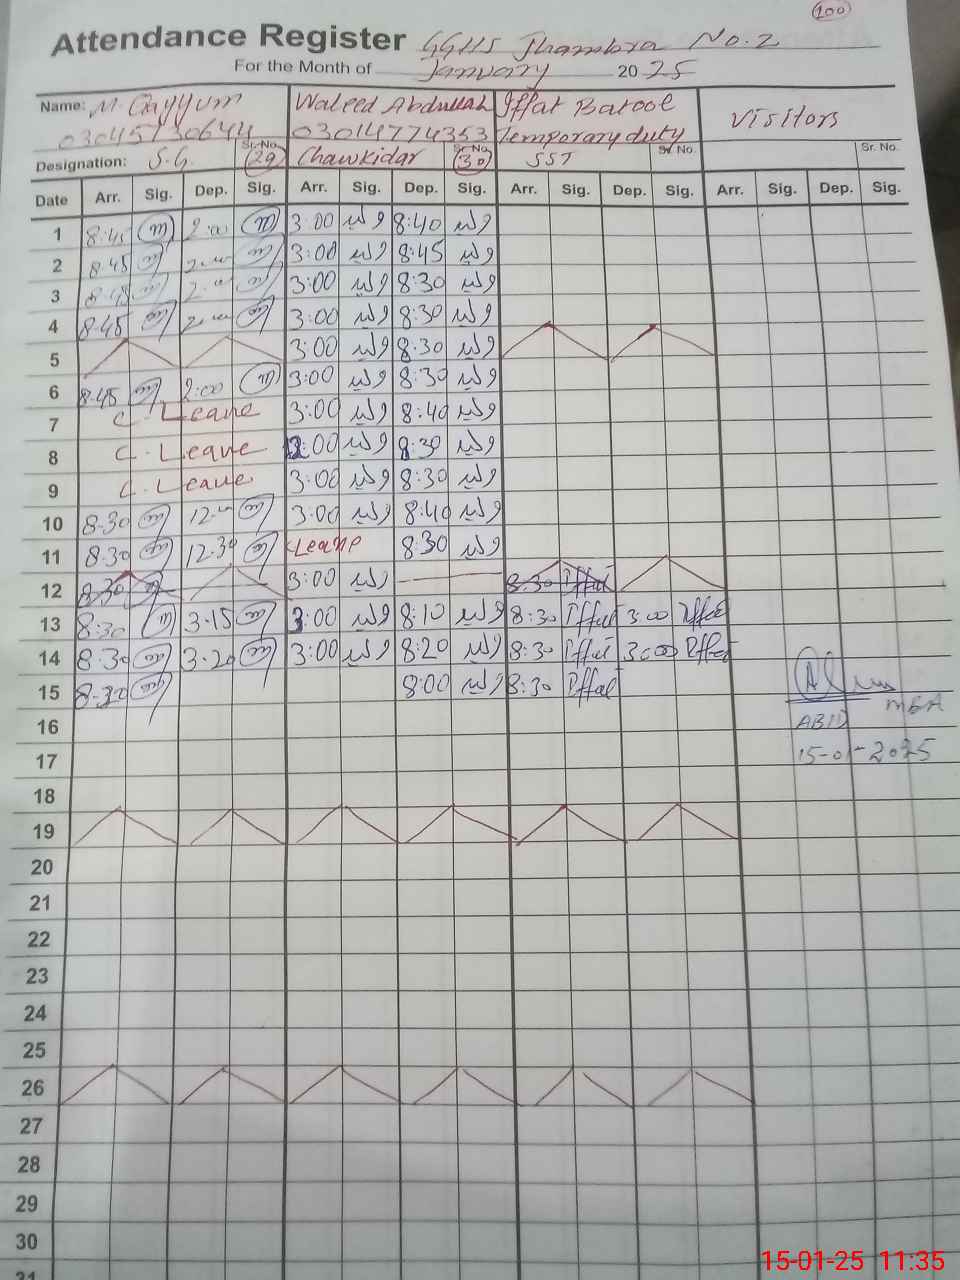 100
Attendance Register GGHS Jhambra No. 2
For the Month of January 2025
Name: M. Qayyum Waleed Abdullah Iffat Batool Visitors
03045730644 03014774353 Temporary duty
Designation: S.G. Sr. No. 29 Chawkidar Sr. No. 30 SST Sr. No. Sr. No.
Date Arr. Sig. Dep. Sig. Arr. Sig. Dep. Sig. Arr. Sig. Dep. Sig. Arr. Sig. Dep. Sig.
1 8:45 m 2:00 m 3:00 ولید 8:40 ولید
2 8:45 m 2:00 m 3:00 ولید 8:45 ولید
3 8:45 m 2:00 m 3:00 ولید 8:30 ولید
4 8:45 m 2:00 m 3:00 ولید 8:30 ولید
5 3:00 ولید 8:30 ولید
6 8:45 m 2:00 m 3:00 ولید 8:30 ولید
7 C. Leave 3:00 ولید 8:40 ولید
8 C. Leave 3:00 ولید 8:30 ولید
9 C. Leave 3:00 ولید 8:30 ولید
10 8:30 m 12:00 m 3:00 ولید 8:40 ولید
11 8:30 m 12:30 m Leave 8:30 ولید
12 8:30 m 3:00 ولید 8:30 Iffat
13 8:30 m 3:15 m 3:00 ولید 8:10 ولید 8:30 Iffat 3:00 Iffat
14 8:30 m 3:20 m 3:00 ولید 8:20 ولید 8:30 Iffat 3:00 Iffat
15 8:30 m 8:00 ولید 8:30 Iffat
16 ABID MEA
17 15-01-2025
18
19
20
21
22
23
24
25
26
27
28
29
30
31
15-01-25 11:35